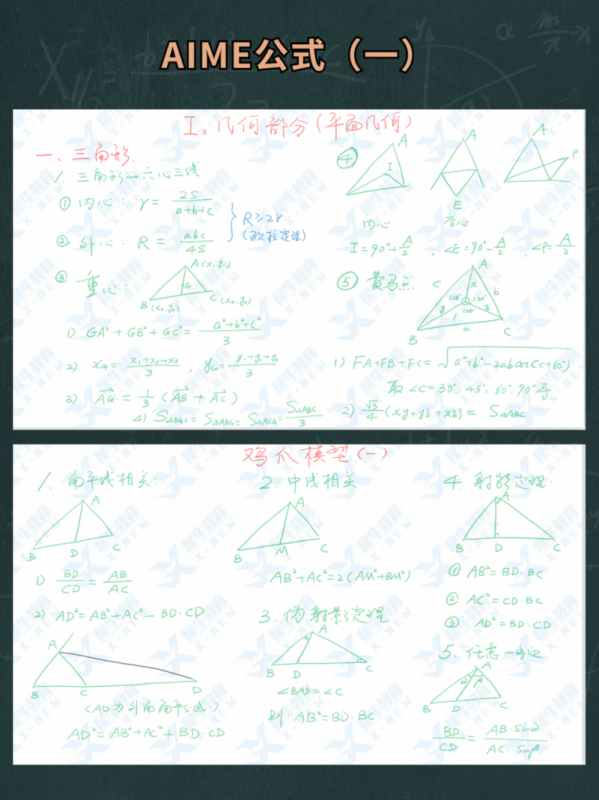 AIME公式（一）
I。几何部分（平面几何）
一、三角形
1. 三角形的六心三线
① 内心：r = 2S/(a+b+c)
② 外心：R = abc/4S
R≥2r
(欧拉定理)
③ 重心：
A(x₁,y₁)
G
B(x₂,y₂)
C(x₃,y₃)
1) GA²+GB²+GC² = (a²+b²+c²)/3
2) x_G = (x₁+x₂+x₃)/3 , y_G = (y₁+y₂+y₃)/3
3) AG = 1/3 (AB + AC)
4) S△ABC = S△ABG = S△ABG = S△ABC/3
④
A
I
A
E
A
P
内心
旁心
I = 90°+A/2 , ∠E = 90°-A/2 , ∠P = A/2
⑤ 费马点
A
c
x
b
120°
120°
y
F
z
B
a
C
1) FA+FB+FC = √(a²+b²-2abcos(C+60°))
取∠C=30°, 45°, 60°, 90°等
2) √3/4 (xy+yz+xz) = S△ABC
鸡爪模型（一）
1. 角平线相关：
A
B
D
C
1) BD/CD = AB/AC
2) AD² = AB²+AC²-BD·CD
A
B
C
D
(AD为外角角平分线)
AD² = AB²+AC²+BD·CD
2. 中线相关
A
B
M
C
AB²+AC² = 2(AM²+BM²)
3. 伪射影定理
A
B
D
C
∠BAD=∠C
则 AB²=BD·BC
4. 射影定理：
A
B
D
C
① AB²=BD·BC
② AC²=CD·BC
③ AD²=BD·CD
5. 任意一点
A
α
β
B
D
C
BD/CD = AB·Sinα/AC·Sinβ